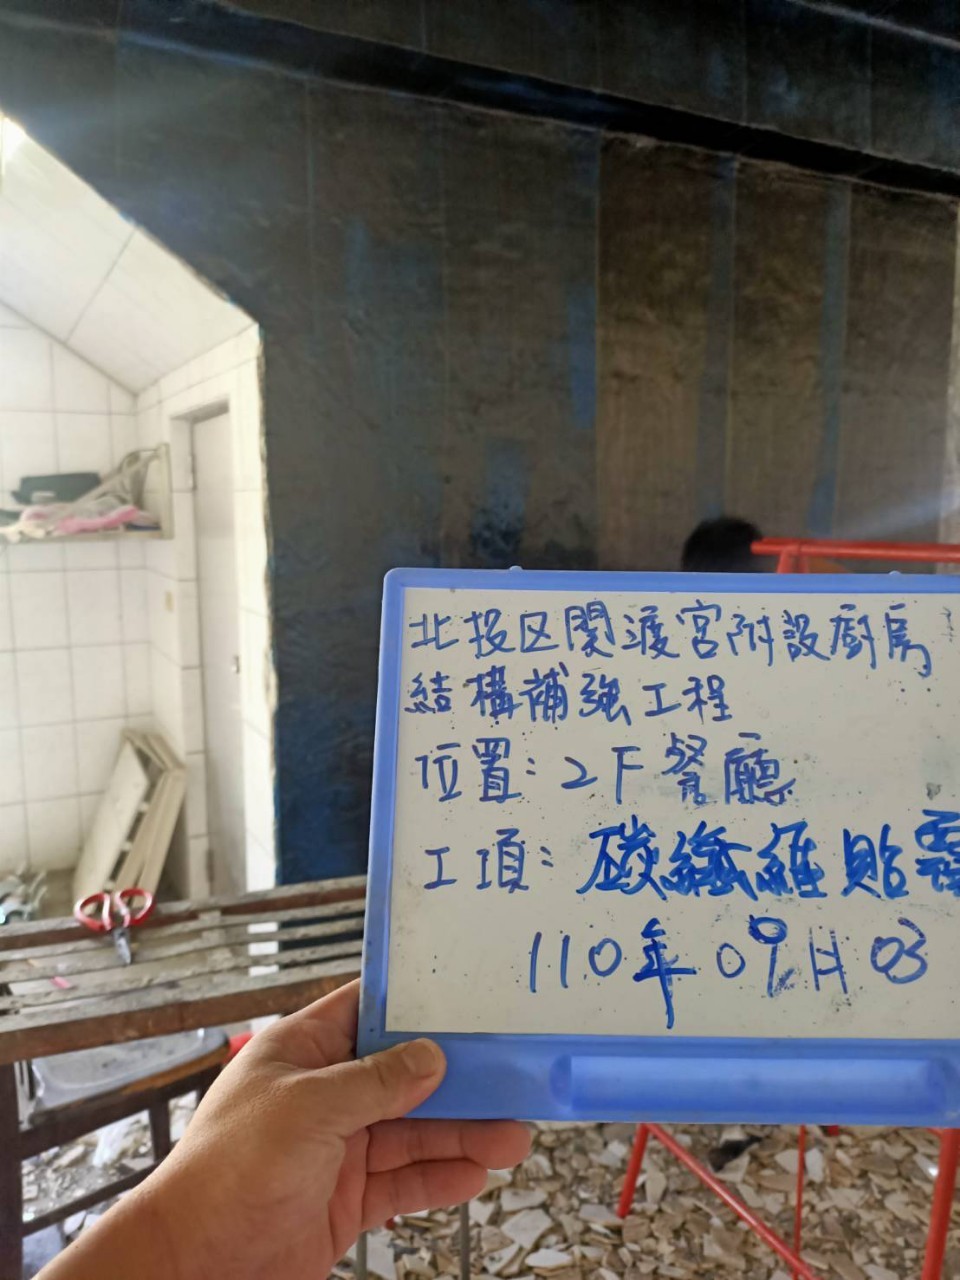 北投区関渡宮附設廚房
結構補強工程
位置:2F餐廳
工項:碳纖維貼覆
110年09月03